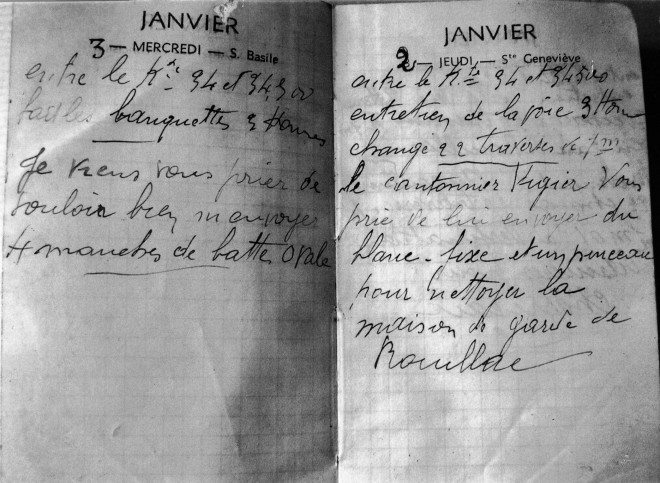 JANVIER
3 — MERCREDI — S. Basile
entre le Kre 94 et 94,500
banquettes 3 hommes
Je viens vous prier de
vouloir bien m envoyer
4 manches de battes ovale
JANVIER
2 — JEUDI — Ste Geneviève
entre le Kre 94 et 94500
entretien de la voie 3 Hom
changé 22 traverses de
le cantonnier Vigier Vous
prie de lui envoyer du
blanc-fixe et un pinceau
pour nettoyer la
maison de garde de
Rouillac